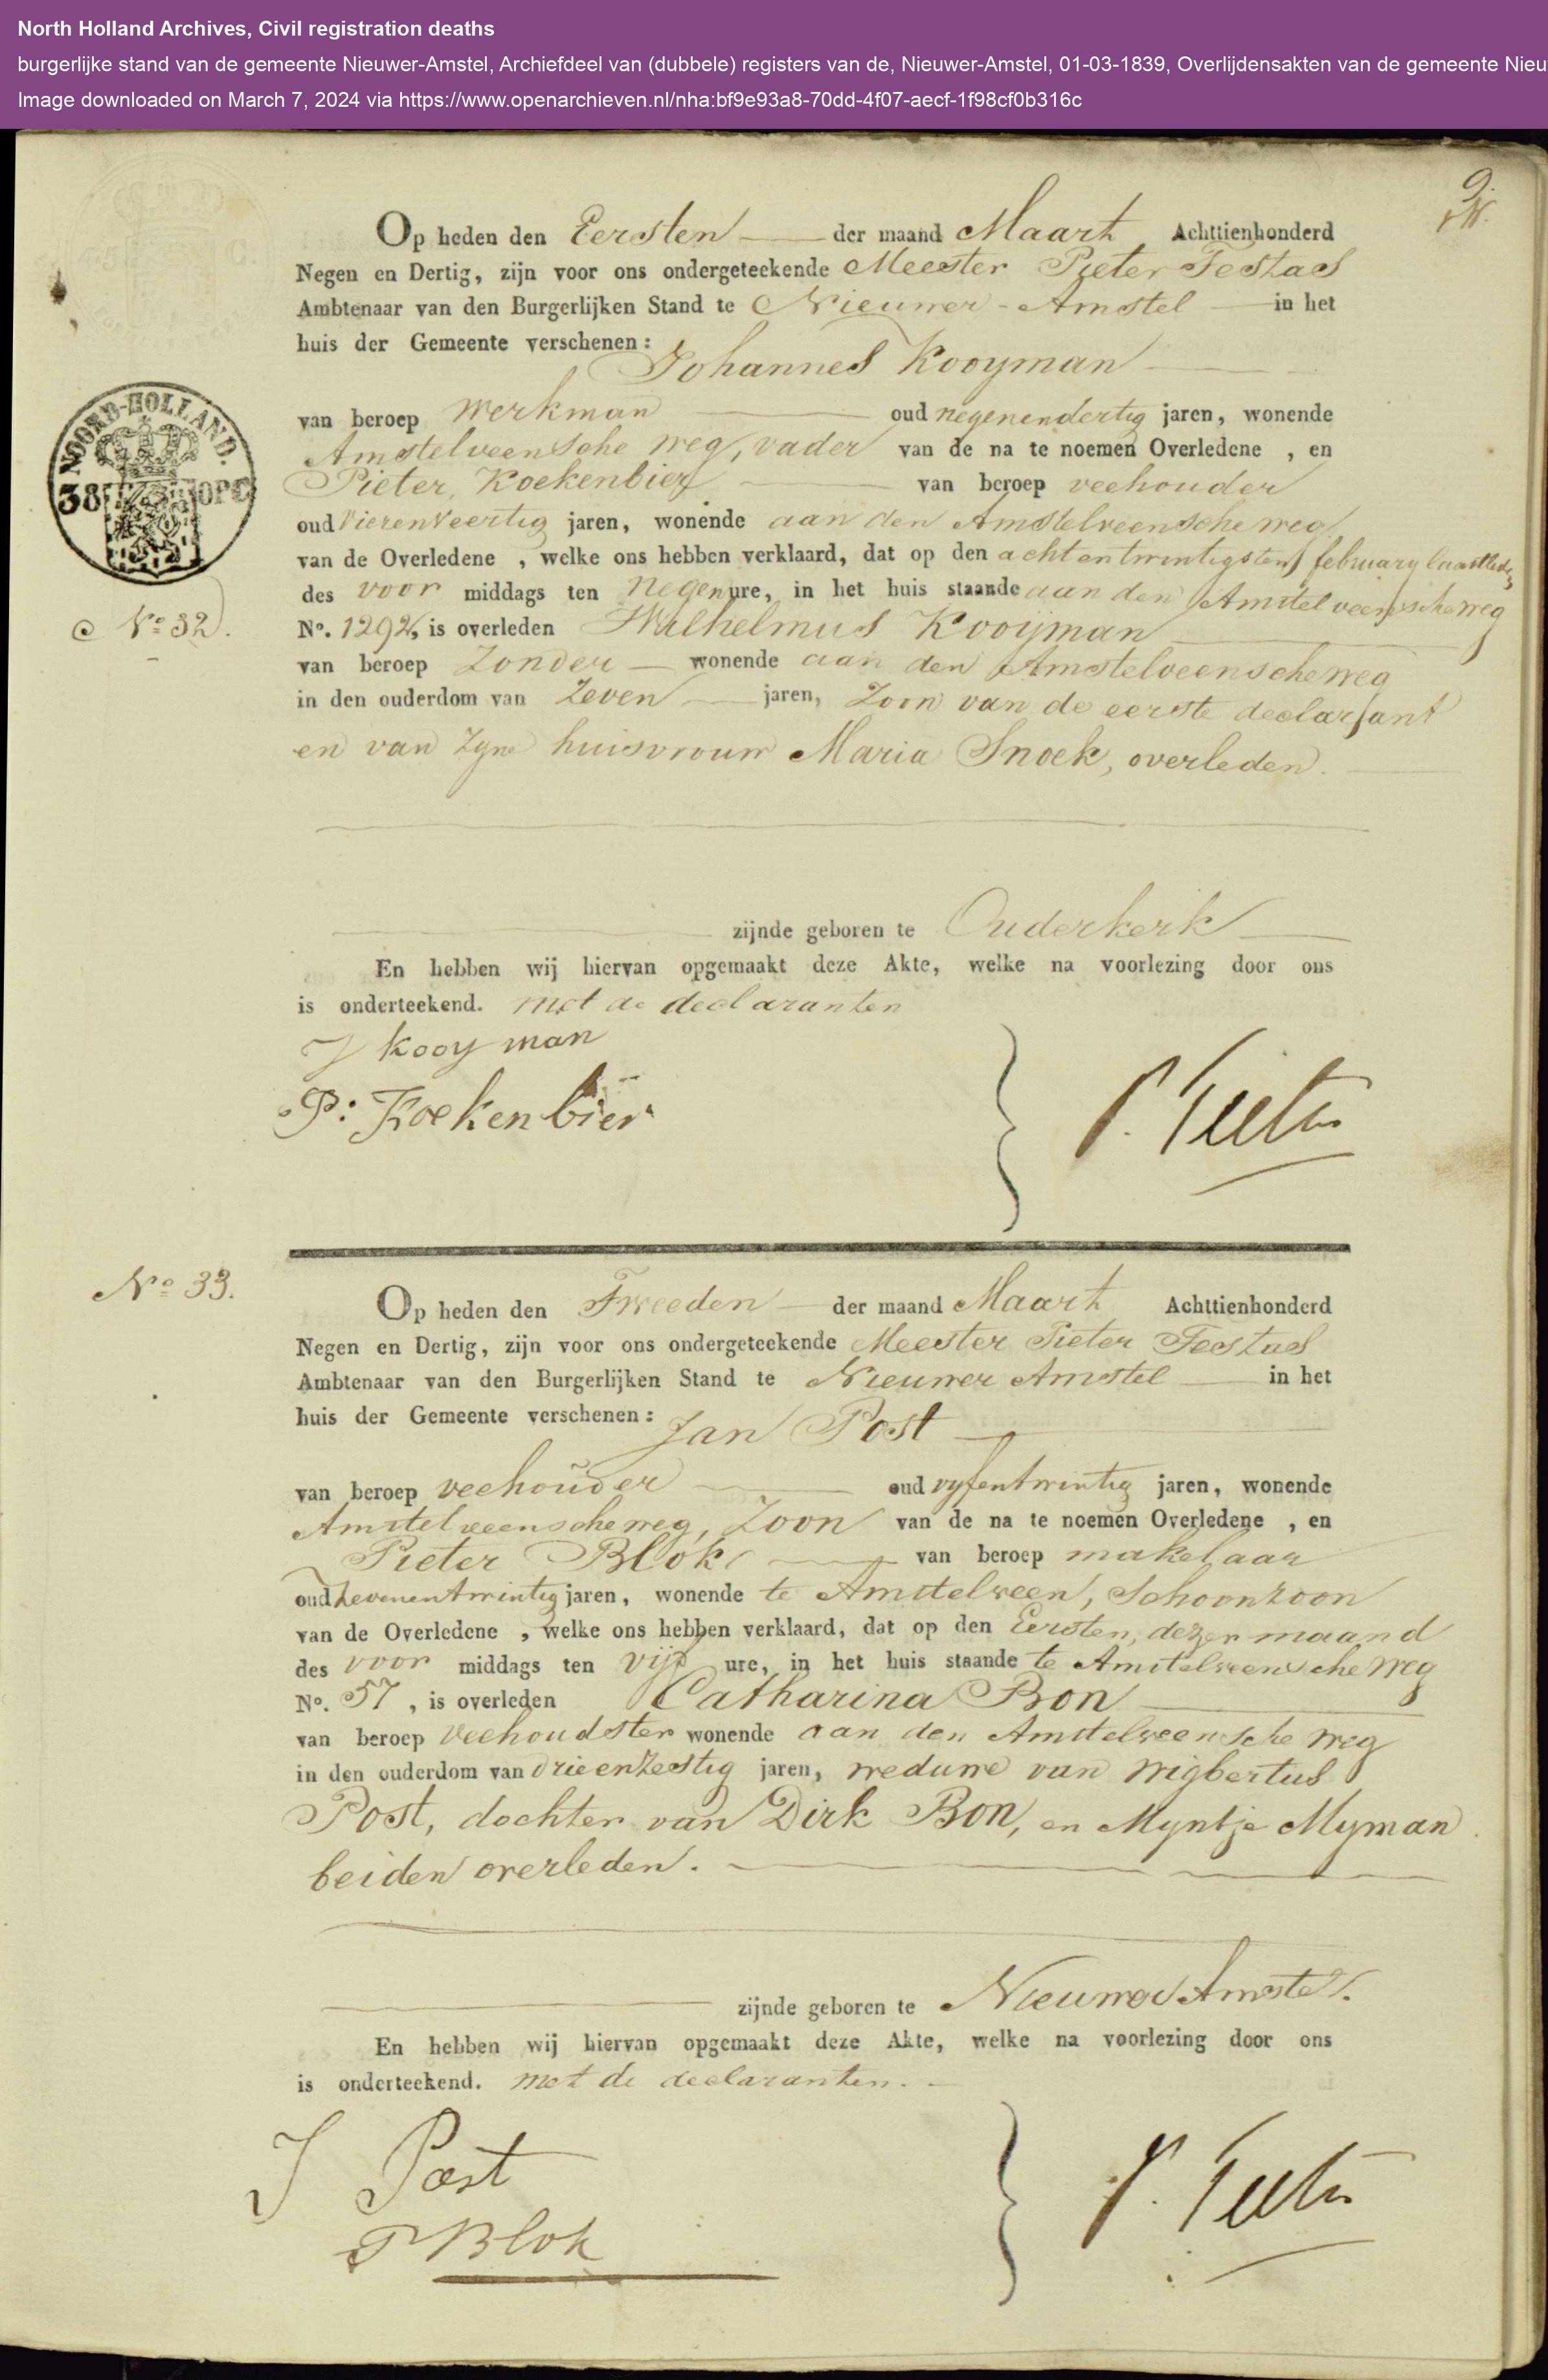 North Holland Archives, Civil registration deaths
burgerlijke stand van de gemeente Nieuwer-Amstel, Archiefdeel van (dubbele) registers van de, Nieuwer-Amstel, 01-03-1839, Overlijdensakten van de gemeente Nieu
Image downloaded on March 7, 2024 via https://www.openarchieven.nl/nha:bf9e93a8-70dd-4f07-aecf-1f98cf0b316c
9.
Op heden den Eersten der maand Maart Achttienhonderd
Negen en Dertig, zijn voor ons ondergeteekende Meester Pieter Testas
Ambtenaar van den Burgerlijken Stand te Nieuwer-Amstel in het
huis der Gemeente verschenen:
Johannes Kooyman
van beroep werkman oud negenendertig jaren, wonende
Amstelveensche weg, vader van de na te noemen Overledene , en
Pieter Koekenbier van beroep veehouder
oud vierenveertig jaren, wonende aan den Amstelveensche weg
van de Overledene , welke ons hebben verklaard, dat op den achtentwintigsten february laatstleden
des voor middags ten negen ure, in het huis staande aan den Amstelveensche weg
No. 129 is overleden Wilhelmus Kooijman
van beroep Zonder wonende aan den Amstelveensche weg
in den ouderdom van Zeven jaren, Zoon van de eerste declarant
en van Zyne huisvrouw Maria Snoek, overleden.
zijnde geboren te Ouderkerk
En hebben wij hiervan opgemaakt deze Akte, welke na voorlezing door ons
is onderteekend. met de declaranten
J Kooy man
P: Koekenbier
NOORD-HOLLAND.
38 OPC
No 32.
No 33.
Op heden den Tweeden der maand Maart Achttienhonderd
Negen en Dertig, zijn voor ons ondergeteekende Meester Pieter Testas
Ambtenaar van den Burgerlijken Stand te Nieuwer Amstel in het
huis der Gemeente verschenen: Jan Post
van beroep veehouder oud vyfentwintig jaren, wonende
Amstelveensche weg, Zoon van de na te noemen Overledene , en
Pieter Blok van beroep makelaar
oud zevenentwintig jaren, wonende te Amstelveen, Schoonzoon
van de Overledene , welke ons hebben verklaard, dat op den Eersten, dezer maand
des voor middags ten vijf ure, in het huis staande te Amstelveensche weg
No. 57 , is overleden Catharina Bon
van beroep veehoudster wonende aan den Amstelveensche weg
in den ouderdom van drieenzestig jaren, weduwe van Wigbertus
Post, dochter van Dirk Bon, en Myntje Myman
beiden overleden.
zijnde geboren te Nieuwer Amstel.
En hebben wij hiervan opgemaakt deze Akte, welke na voorlezing door ons
is onderteekend. met de declaranten.
J Post
P Blok